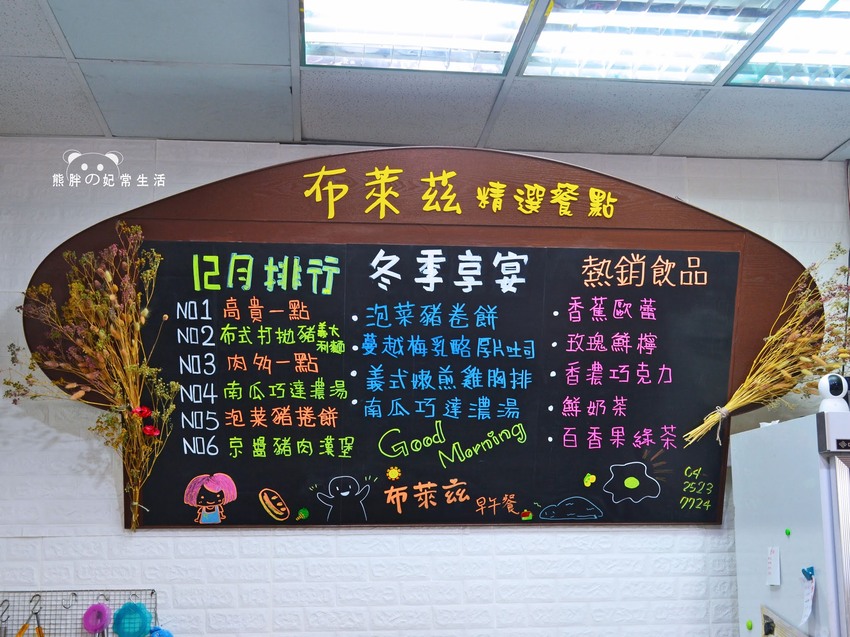 熊胖の妃常生活
布萊茲精選餐點
12月排行
NO1 高貴一點
NO2 布式打拋豬義大利麵
NO3 肉多一點
NO4 南瓜巧達濃湯
NO5 泡菜豬捲餅
NO6 京醬豬肉漢堡
冬季享宴
・泡菜豬卷餅
・蔓越梅乳酪厚片吐司
・義式嫩煎雞胸排
・南瓜巧達濃湯
Good
Morning
熱銷飲品
・香蕉歐蕾
・玫瑰鮮檸
・香濃巧克力
・鮮奶茶
・百香果綠茶
布萊茲 早午餐
04-
2523
7724